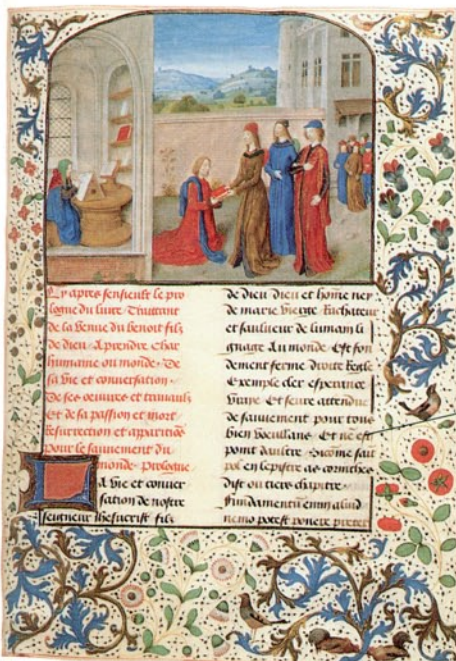 Cy apres sensieult le pro
logue du livre Traittant
de la venue du benoit filz
de dieu A prendre char
humaine ou monde De
sa vie et conversation
De ses oeuvres et travaulx
Et de sa passion et mort
Resurrection et apparitions
Pour le sauvement du
monde Prologue
La vie et conver
sation de nostre
seigneur Jhesucrist filz
de dieu dieu et homme ney
de marie vierge Rachateur
et sauveur de lumain li
gnaige Au monde Est fon
dement ferme Droite Regle
Exemple cler esperance
Vraye Et seure attendue
de sauvement pour tous
bien voeullans Et ne est
point aultre Sicome saint
pol en lepistre as corinthes
Dist ou tiers chapitre
Fundamentum enim aliud
nemo potest ponere preter